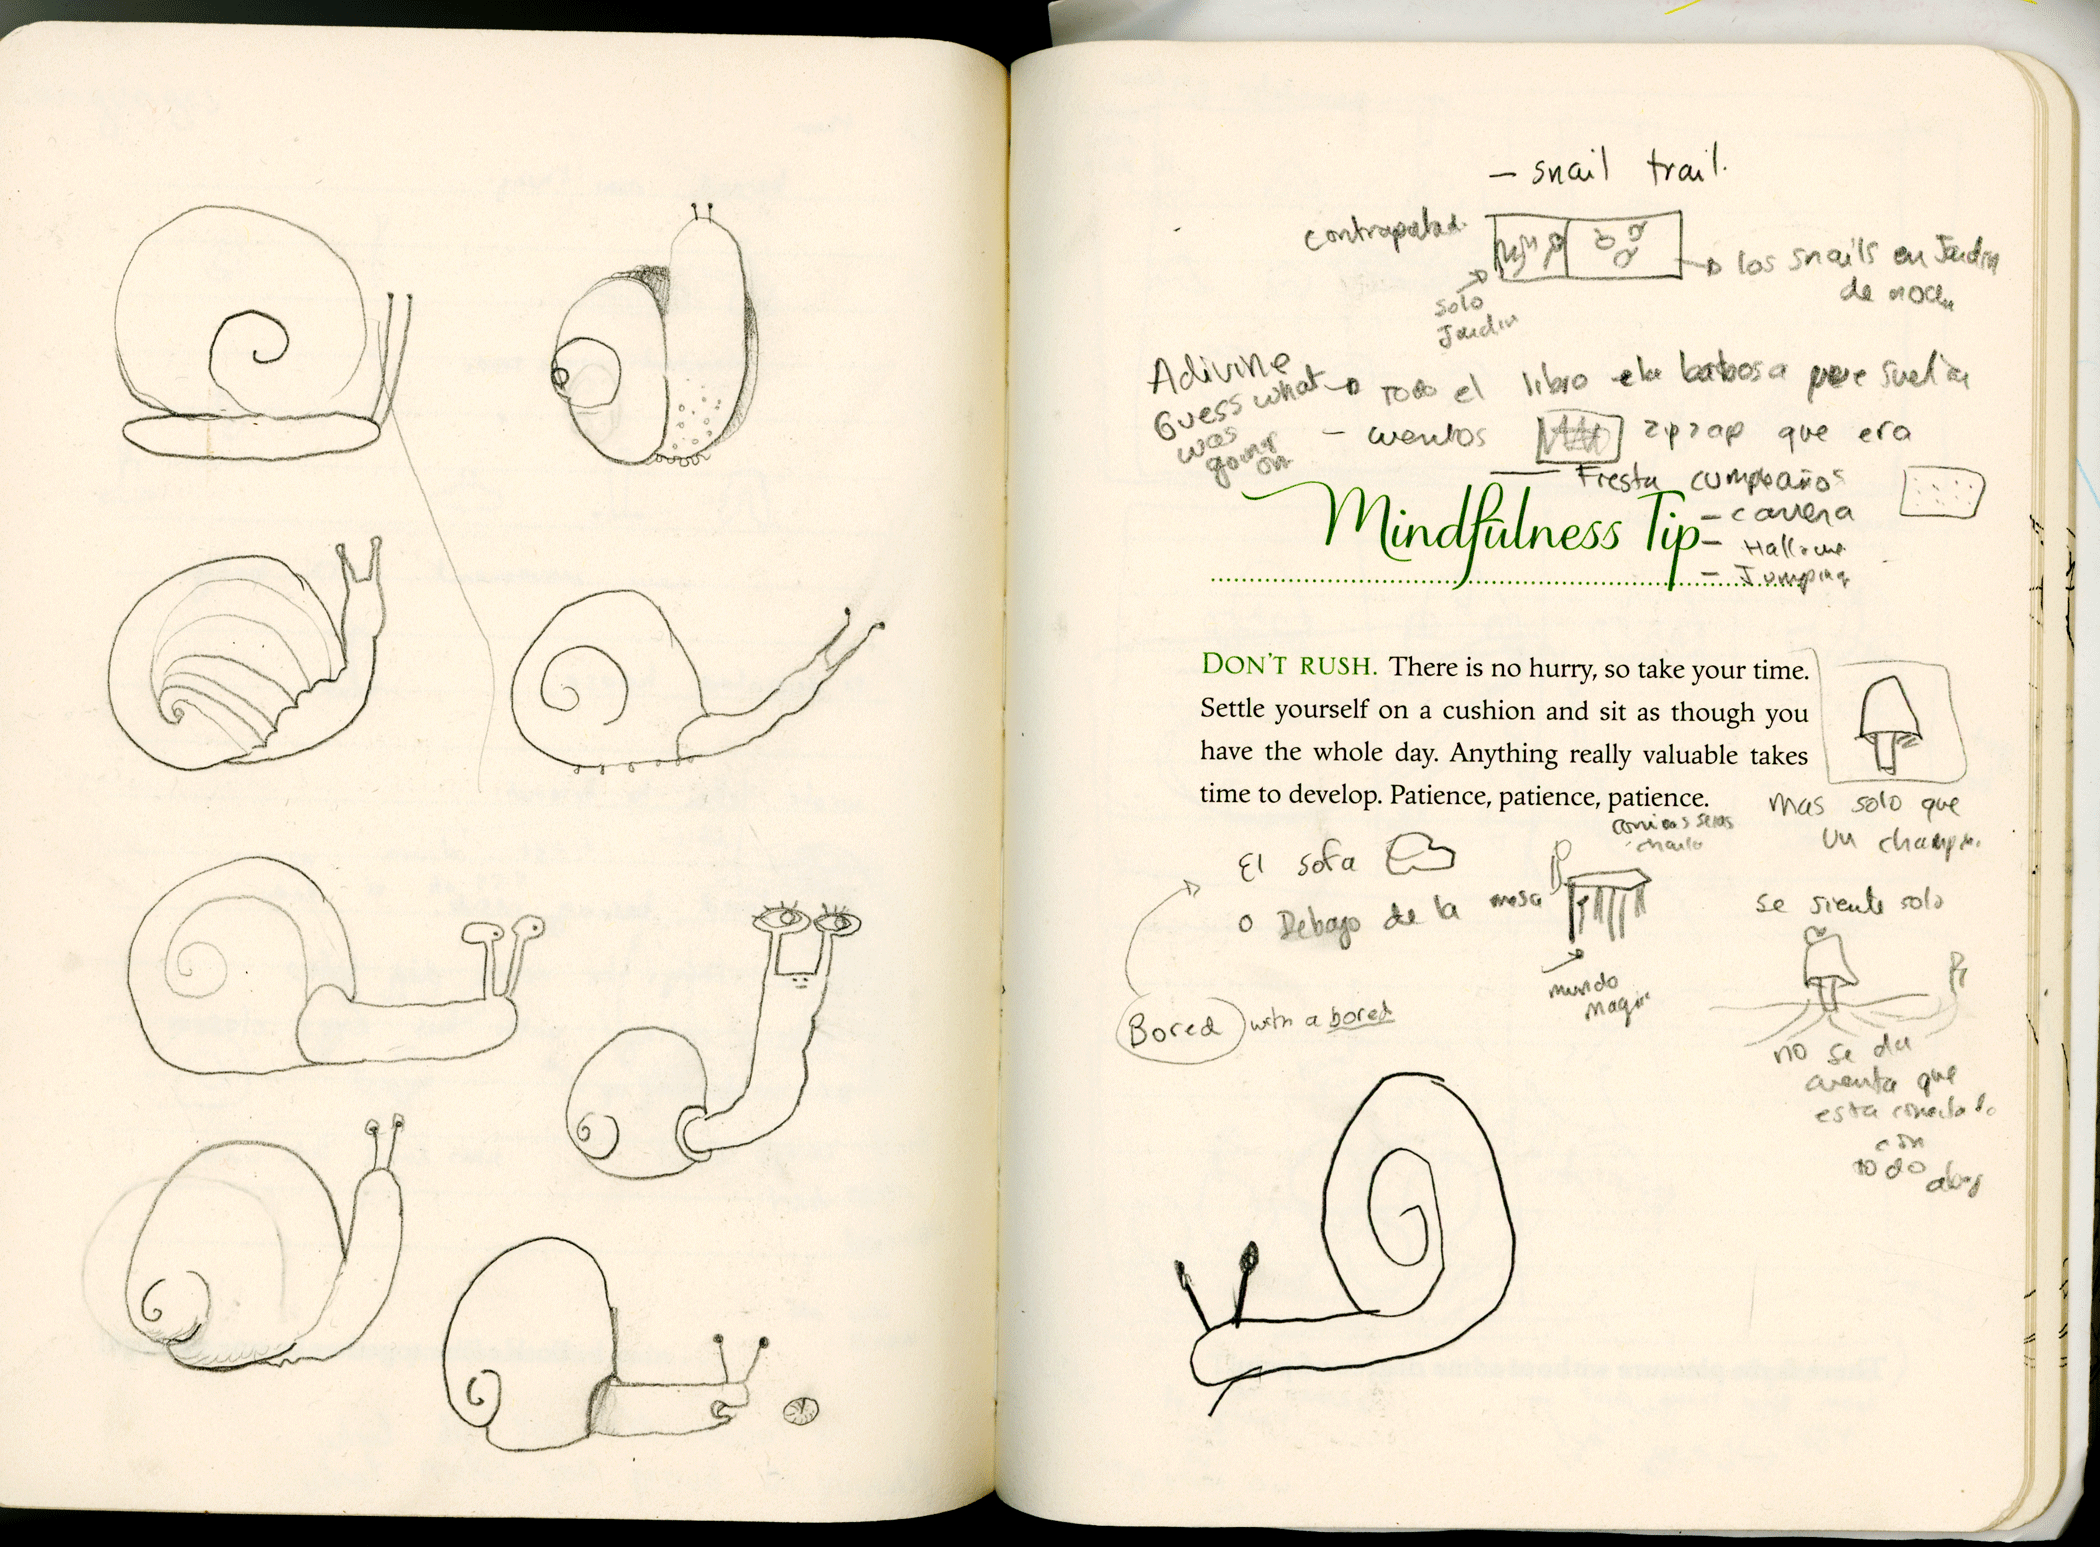 – snail trail.
contraportad.
los snails en Jardin
de noche
solo
Jardin
Adivine
Guess what
was
going
on
Todo el libro
babosa
suelta
– cuentos
que era
— Fiesta cumpleaños
– carrera
–
– Jumping
Mindfulness Tip
DON'T RUSH. There is no hurry, so take your time.
Settle yourself on a cushion and sit as though you
have the whole day. Anything really valuable takes
time to develop. Patience, patience, patience.
mas solo que
un
El sofa
o Debajo de la mesa
se siente solo
mundo
Bored with a bored
no se da
cuenta que
esta
con
todo